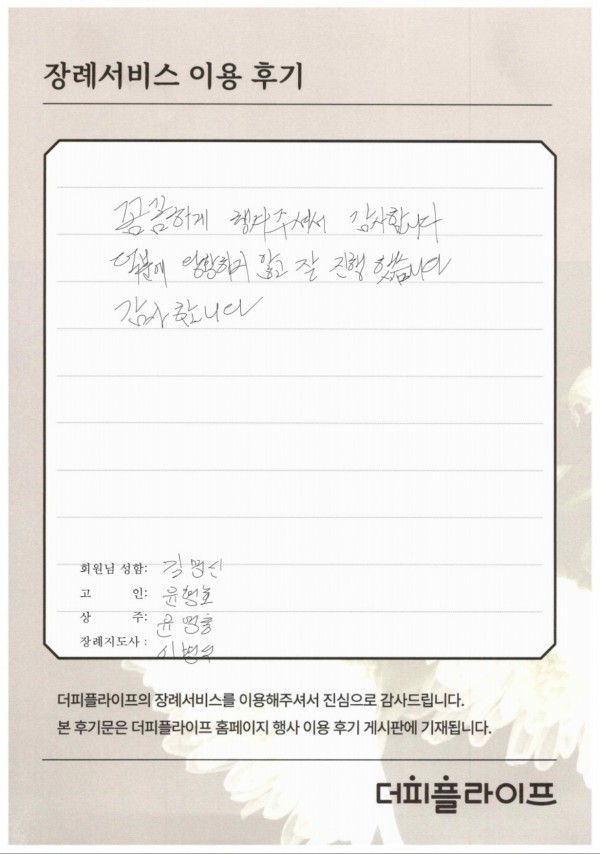 장례서비스 이용 후기
꼼꼼하게 행사주셔서 감사합니다
덕분에 당황하지 않고 잘 진행 했습니다
감사합니다
회원님 성함: 김명신
고 인: 윤형호
상 주:
장례지도사 :
더피플라이프의 장례서비스를 이용해주셔서 진심으로 감사드립니다.
본 후기문은 더피플라이프 홈페이지 행사 이용 후기 게시판에 기재됩니다.
더피플라이프